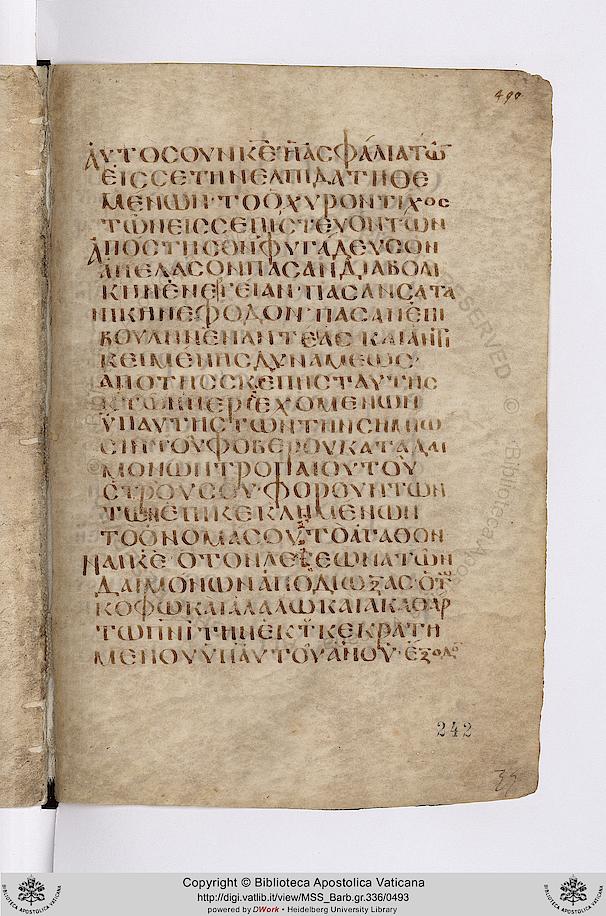 490
ΑΥΤΟΣ ΟΥΝ ΚΕ Η ΑΣΦΑΛΙΑ ΤΩ
ΕΙΣ ΣΕ ΤΗΝ ΕΛΠΙΔΑ ΤΗΘΕ
ΜΕΝΩΝ ΤΟ ΟΧΥΡΟΝ ΤΙΧΟΣ
ΤΩΝ ΕΙΣ ΣΕ ΠΙΣΤΕΥΟΝΤΩΝ
ΑΠΟΣΤΗΣΟΝ ΦΥΓΑΔΕΥΣΟΝ
ΑΠΕΛΑΣΟΝ ΠΑΣΑΝ ΔΙΑΒΟΛΙ
ΚΗΝ ΕΝΕΡΓΕΙΑΝ ΠΑΣΑΝ ΣΑΤΑ
ΝΙΚΗΝ ΕΦΟΔΟΝ ΠΑΣΑΝ ΕΠΙ
ΒΟΥΛΗΝ ΕΝΑΝΤΕΑΣ ΚΑΙ ΑΝΤΙ
ΚΕΙΜΕΝΗΣ ΔΥΝΑΜΕΩΣ
ΑΠΟ ΤΗΣ ΣΚΕΠΗΣ ΤΑΥΤΗΣ
ΠΕΡΙΕΧΟΜΕΝΩΝ
ΥΠ ΑΥΤΗΣ ΤΩΝ ΤΗΝ ΣΗΜΙΩ
ΣΙΝ ΤΟΥ ΦΟΒΕΡΟΥ ΚΑΤΑ ΔΑΙ
ΜΟΝΩΝ ΤΡΟΠΑΙΟΥ ΤΟΥ
ΣΤΡΟΥ ΣΟΥ ΦΟΡΟΥΝΤΩΝ
ΤΩΝ ΕΠΙΚΕΚΛΗΜΕΝΩΝ
ΤΟ ΟΝΟΜΑ ΣΟΥ ΤΟ ΑΓΑΘΟΝ
ΝΑΙ ΚΕ Ο ΤΟΝ ΛΕΓΕΩΝΑ ΤΩΝ
ΔΑΙΜΟΝΩΝ ΑΠΟΔΙΩΞΑΣ Ο ΤΩ
ΚΟΦΩ ΚΑΙ ΑΛΑΛΩ ΚΑΙ ΑΚΑΘΑΡ
ΤΩ ΠΝΙ ΤΗΝ ΕΚ Τ ΚΕΚΡΑΤΗ
ΜΕΝΟΥ ΥΠ ΑΥΤΟΥ ΑΝΟΥ ΕΞΟΔΟ
242
Copyright © Biblioteca Apostolica Vaticana
http://digi.vatlib.it/view/MSS_Barb.gr.336/0493
powered by DWork • Heidelberg University Library